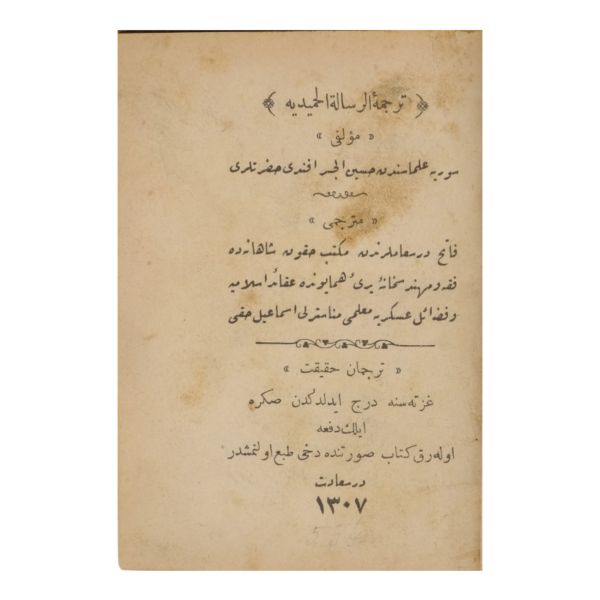 ﴿ ترجمهٔ الرسالة الحمیدیه ﴾
« مؤلفی »
سوریه علماسندن حسین الجسر افندی حضرتلری
« مترجمی »
فاتح درسعاملرندن مکتب حقوق شاهانه‌ده
فقه و مهندسخانهٔ بریٔ همایونده عقائد اسلامیه
و فضائل عسکریه معلمی مناسترلی اسماعیل حقی
« ترجمان حقیقت »
غزته‌سنه درج ایدلدکدن صکره
ایلك دفعه
اوله‌رق کتاب صورتنده دخی طبع اولنمشدر
درسعادت
١٣٠٧